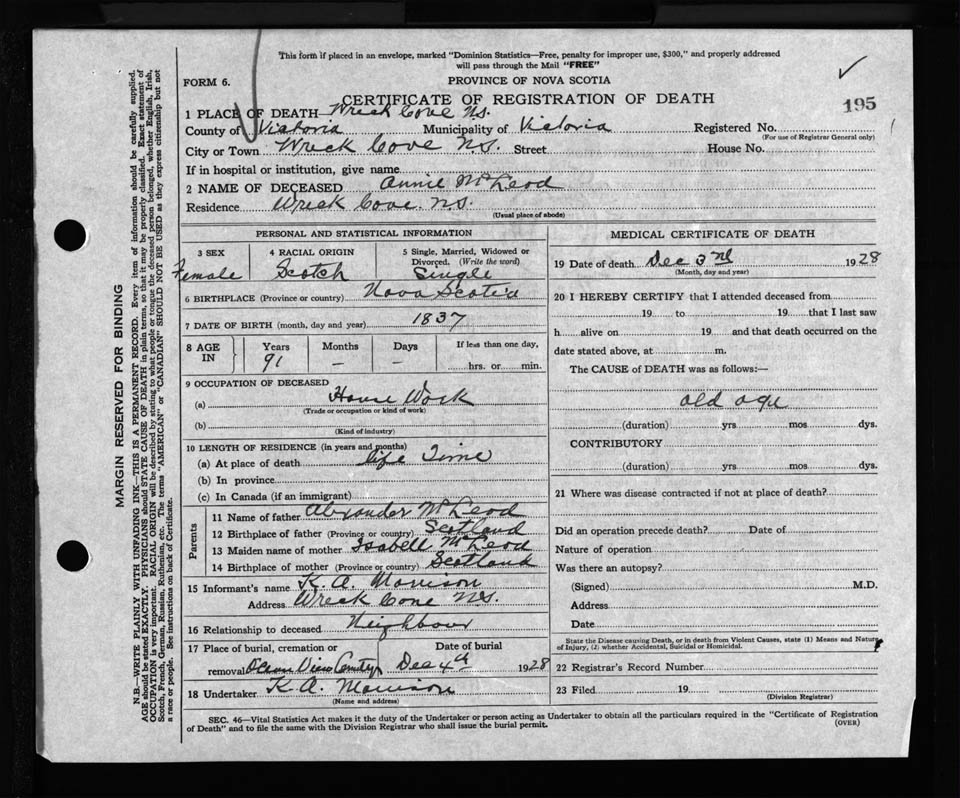 This form if placed in an envelope, marked "Dominion Statistics—Free, penalty for improper use, $300," and properly addressed
will pass through the Mail "FREE"
FORM 6.
PROVINCE OF NOVA SCOTIA
CERTIFICATE OF REGISTRATION OF DEATH
195
1 PLACE OF DEATH Wreck Cove N.S.
County of Victoria Municipality of Victoria Registered No.
(For use of Registrar General only)
City or Town Wreck Cove N.S. Street House No.
If in hospital or institution, give name
2 NAME OF DECEASED Annie McLeod
Residence Wreck Cove. N.S.
(Usual place of abode)
PERSONAL AND STATISTICAL INFORMATION
3 SEX 4 RACIAL ORIGIN 5 Single, Married, Widowed or Divorced. (Write the word)
Female Scotch Single
6 BIRTHPLACE (Province or country) Nova Scotia
7 DATE OF BIRTH (month, day and year) 1837
8 AGE IN Years Months Days If less than one day,
91 — — hrs. or min.
9 OCCUPATION OF DECEASED
(a) House Work
(Trade or occupation or kind of work)
(b)
(Kind of industry)
10 LENGTH OF RESIDENCE (in years and months)
(a) At place of death life Time
(b) In province
(c) In Canada (if an immigrant)
Parents
11 Name of father Alexander McLeod
12 Birthplace of father (Province or country) Scotland
13 Maiden name of mother Isabell McLeod
14 Birthplace of mother (Province or country) Scotland
15 Informant's name K. A. Morrison
Address Wreck Cove N.S.
16 Relationship to deceased Neighbour
17 Place of burial, cremation or Date of burial
removal Ocean View Cemetry Dec 4th 1928
18 Undertaker K. A. Morrison
(Name and address)
MEDICAL CERTIFICATE OF DEATH
19 Date of death Dec 3rd 1928
(Month, day and year)
20 I HEREBY CERTIFY that I attended deceased from
19 to 19 that I last saw
h alive on 19 and that death occurred on the
date stated above, at m.
The CAUSE of DEATH was as follows:—
old age
(duration) yrs mos dys.
CONTRIBUTORY
(duration) yrs mos dys.
21 Where was disease contracted if not at place of death?
Did an operation precede death? Date of
Nature of operation
Was there an autopsy?
(Signed) M.D.
Address
Date
State the Disease causing Death, or in death from Violent Causes, state (1) Means and Nature
of Injury, (2) whether Accidental, Suicidal or Homicidal.
22 Registrar's Record Number
23 Filed 19
(Division Registrar)
SEC. 46—Vital Statistics Act makes it the duty of the Undertaker or person acting as Undertaker to obtain all the particulars required in the "Certificate of Registration
of Death" and to file the same with the Division Registrar who shall issue the burial permit.
(OVER)
MARGIN RESERVED FOR BINDING
N.B.—WRITE PLAINLY WITH UNFADING INK—THIS IS A PERMANENT RECORD. Every item of information should be carefully supplied.
AGE should be stated EXACTLY. PHYSICIANS should STATE CAUSE OF DEATH in plain terms, so that it may be properly classified. Exact statement of
OCCUPATION is very important. RACIAL ORIGIN will be described by stating to what people or tongue the deceased person belonged, whether English, Irish,
Scotch, French, German, Russian, Ruthenian, etc. The terms "AMERICAN" or "CANADIAN" SHOULD NOT BE USED as they express citizenship but not
a race or people. See instructions on back of Certificate.